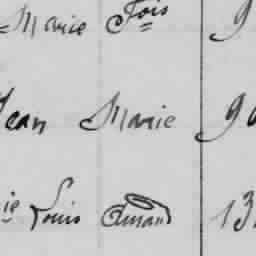 Marie Fois 9
Jean Marie 90
ie Louis Amand 13